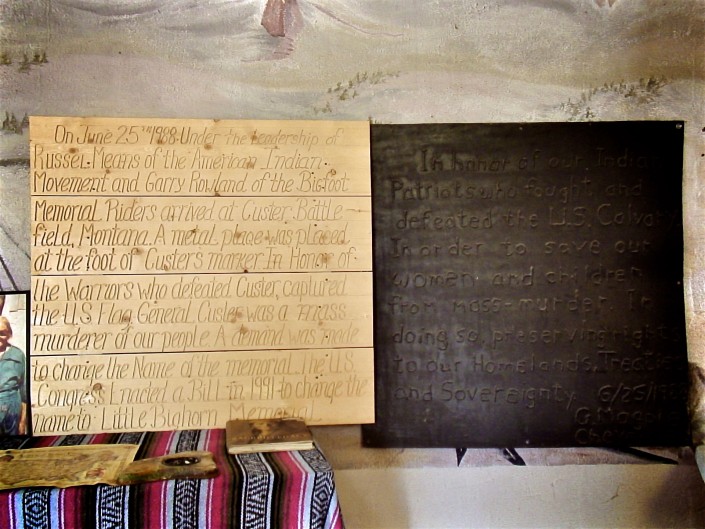 On June 25TH 1988. Under the Leadership of
Russel. Means of the American Indian.
Movement and Garry Rowland of the Bigfoot
Memorial Riders arrived at Custer. Battle-
field, Montana. A metal. plaqe was placed
at the foot of Custers marker. In Honor of.
the Warriors who defeated Custer, captured
the U.S. Flag. General. Custer was a mass
murderer of our people. A demand was made
to change the Name of the memorial. The U.S.
Congress Enacted a Bill. in 1991 to change the
name to Little Bighorn Memorial
In honor of our Indian
Patriots who fought and
defeated the U.S. Calvary
In order to save our
women and children
from mass-murder. In
doing so, preserving right
to our Homelands, Treaties
and Sovereignty. 6/25/
G. Mag